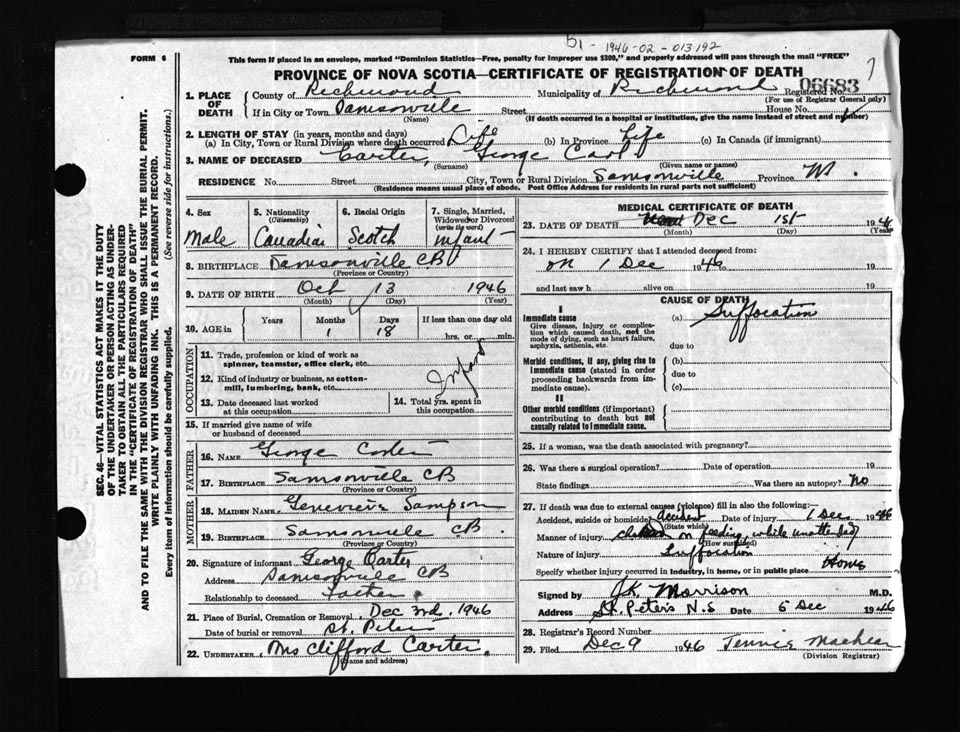 51 - 1946-02-013192
FORM 6
This form if placed in an envelope, marked "Dominion Statistics—Free, penalty for improper use $300," and properly addressed will pass through the mail "FREE"
7
PROVINCE OF NOVA SCOTIA—CERTIFICATE OF REGISTRATION OF DEATH
06683
1. PLACE OF DEATH
County of Richmond Municipality of Richmond Registered No.
(For use of Registrar General only)
If in City or Town Samsonville Street House No.
(Name) (If death occurred in a hospital or institution, give the name instead of street and number)
2. LENGTH OF STAY (in years, months and days)
(a) In City, Town or Rural Division where death occurred Life (b) In Province Life (c) In Canada (if immigrant)
3. NAME OF DECEASED Carter, George Carl
(Surname) (Given name or names)
RESIDENCE No. Street City, Town or Rural Division Samsonville Province
(Residence means usual place of abode. Post Office Address for residents in rural parts not sufficient)
4. Sex
Male
5. Nationality
(Citizenship)
Canadian
6. Racial Origin
Scotch
7. Single, Married, Widowed or Divorced
(write the word)
infant
8. BIRTHPLACE Samsonville CB
(Province or Country)
9. DATE OF BIRTH Oct 13 1946
(Month) (Day) (Year)
10. AGE in Years Months Days If less than one day old
1 18 hrs. or min.
OCCUPATION
11. Trade, profession or kind of work as
spinner, teamster, office clerk, etc.
12. Kind of industry or business, as cotton-
mill, lumbering, bank, etc.
Infant
13. Date deceased last worked
at this occupation
14. Total yrs. spent in
this occupation
15. If married give name of wife
or husband of deceased
FATHER
16. NAME George Carter
17. BIRTHPLACE Samsonville CB
(Province or Country)
MOTHER
18. MAIDEN NAME Genevieve Sampson
19. BIRTHPLACE Samsonville CB.
(Province or Country)
20. Signature of informant George Carter
Address Samsonville CB
Relationship to deceased Father
21. Place of Burial, Cremation or Removal Dec 3rd, 1946
Date of burial or removal St. Peters
22. UNDERTAKER Mrs Clifford Carter.
(Name and address)
MEDICAL CERTIFICATE OF DEATH
23. DATE OF DEATH Dec 1st 194
(Month) (Day) (Year)
24. I HEREBY CERTIFY that I attended deceased from:
on 1 Dec 1946 to 19
and last saw h alive on 19
CAUSE OF DEATH
I
Immediate cause (a) Suffocation
Give disease, injury or complica-
tion which caused death, not the
mode of dying, such as heart failure,
asphyxia, asthenia, etc.
due to
Morbid conditions, if any, giving rise to
immediate cause (stated in order
proceeding backwards from im-
mediate cause).
(b)
due to
(c)
II
Other morbid conditions (if important)
contributing to death but not
causally related to immediate cause.
25. If a woman, was the death associated with pregnancy?
26. Was there a surgical operation? Date of operation 19
State findings Was there an autopsy? No
27. If death was due to external causes (violence) fill in also the following:—
Accident, suicide or homicide? accident Date of injury 1 Dec 1946
(State which)
Manner of injury on feeding, while
(How sustained)
Nature of injury Suffocation
Specify whether injury occurred in industry, in home, or in public place Home
Signed by J.K. Morrison M.D.
Address St. Peter's N.S Date 5 Dec 1946
28. Registrar's Record Number
29. Filed Dec 9 1946 Tennis
(Division Registrar)
SEC. 46—VITAL STATISTICS ACT MAKES IT THE DUTY
OF THE UNDERTAKER OR PERSON ACTING AS UNDER-
TAKER TO OBTAIN ALL THE PARTICULARS REQUIRED
IN THE "CERTIFICATE OF REGISTRATION OF DEATH"
AND TO FILE THE SAME WITH THE DIVISION REGISTRAR WHO SHALL ISSUE THE BURIAL PERMIT.
WRITE PLAINLY WITH UNFADING INK. THIS IS A PERMANENT RECORD.
Every item of Information should be carefully supplied. (See reverse side for instructions.)